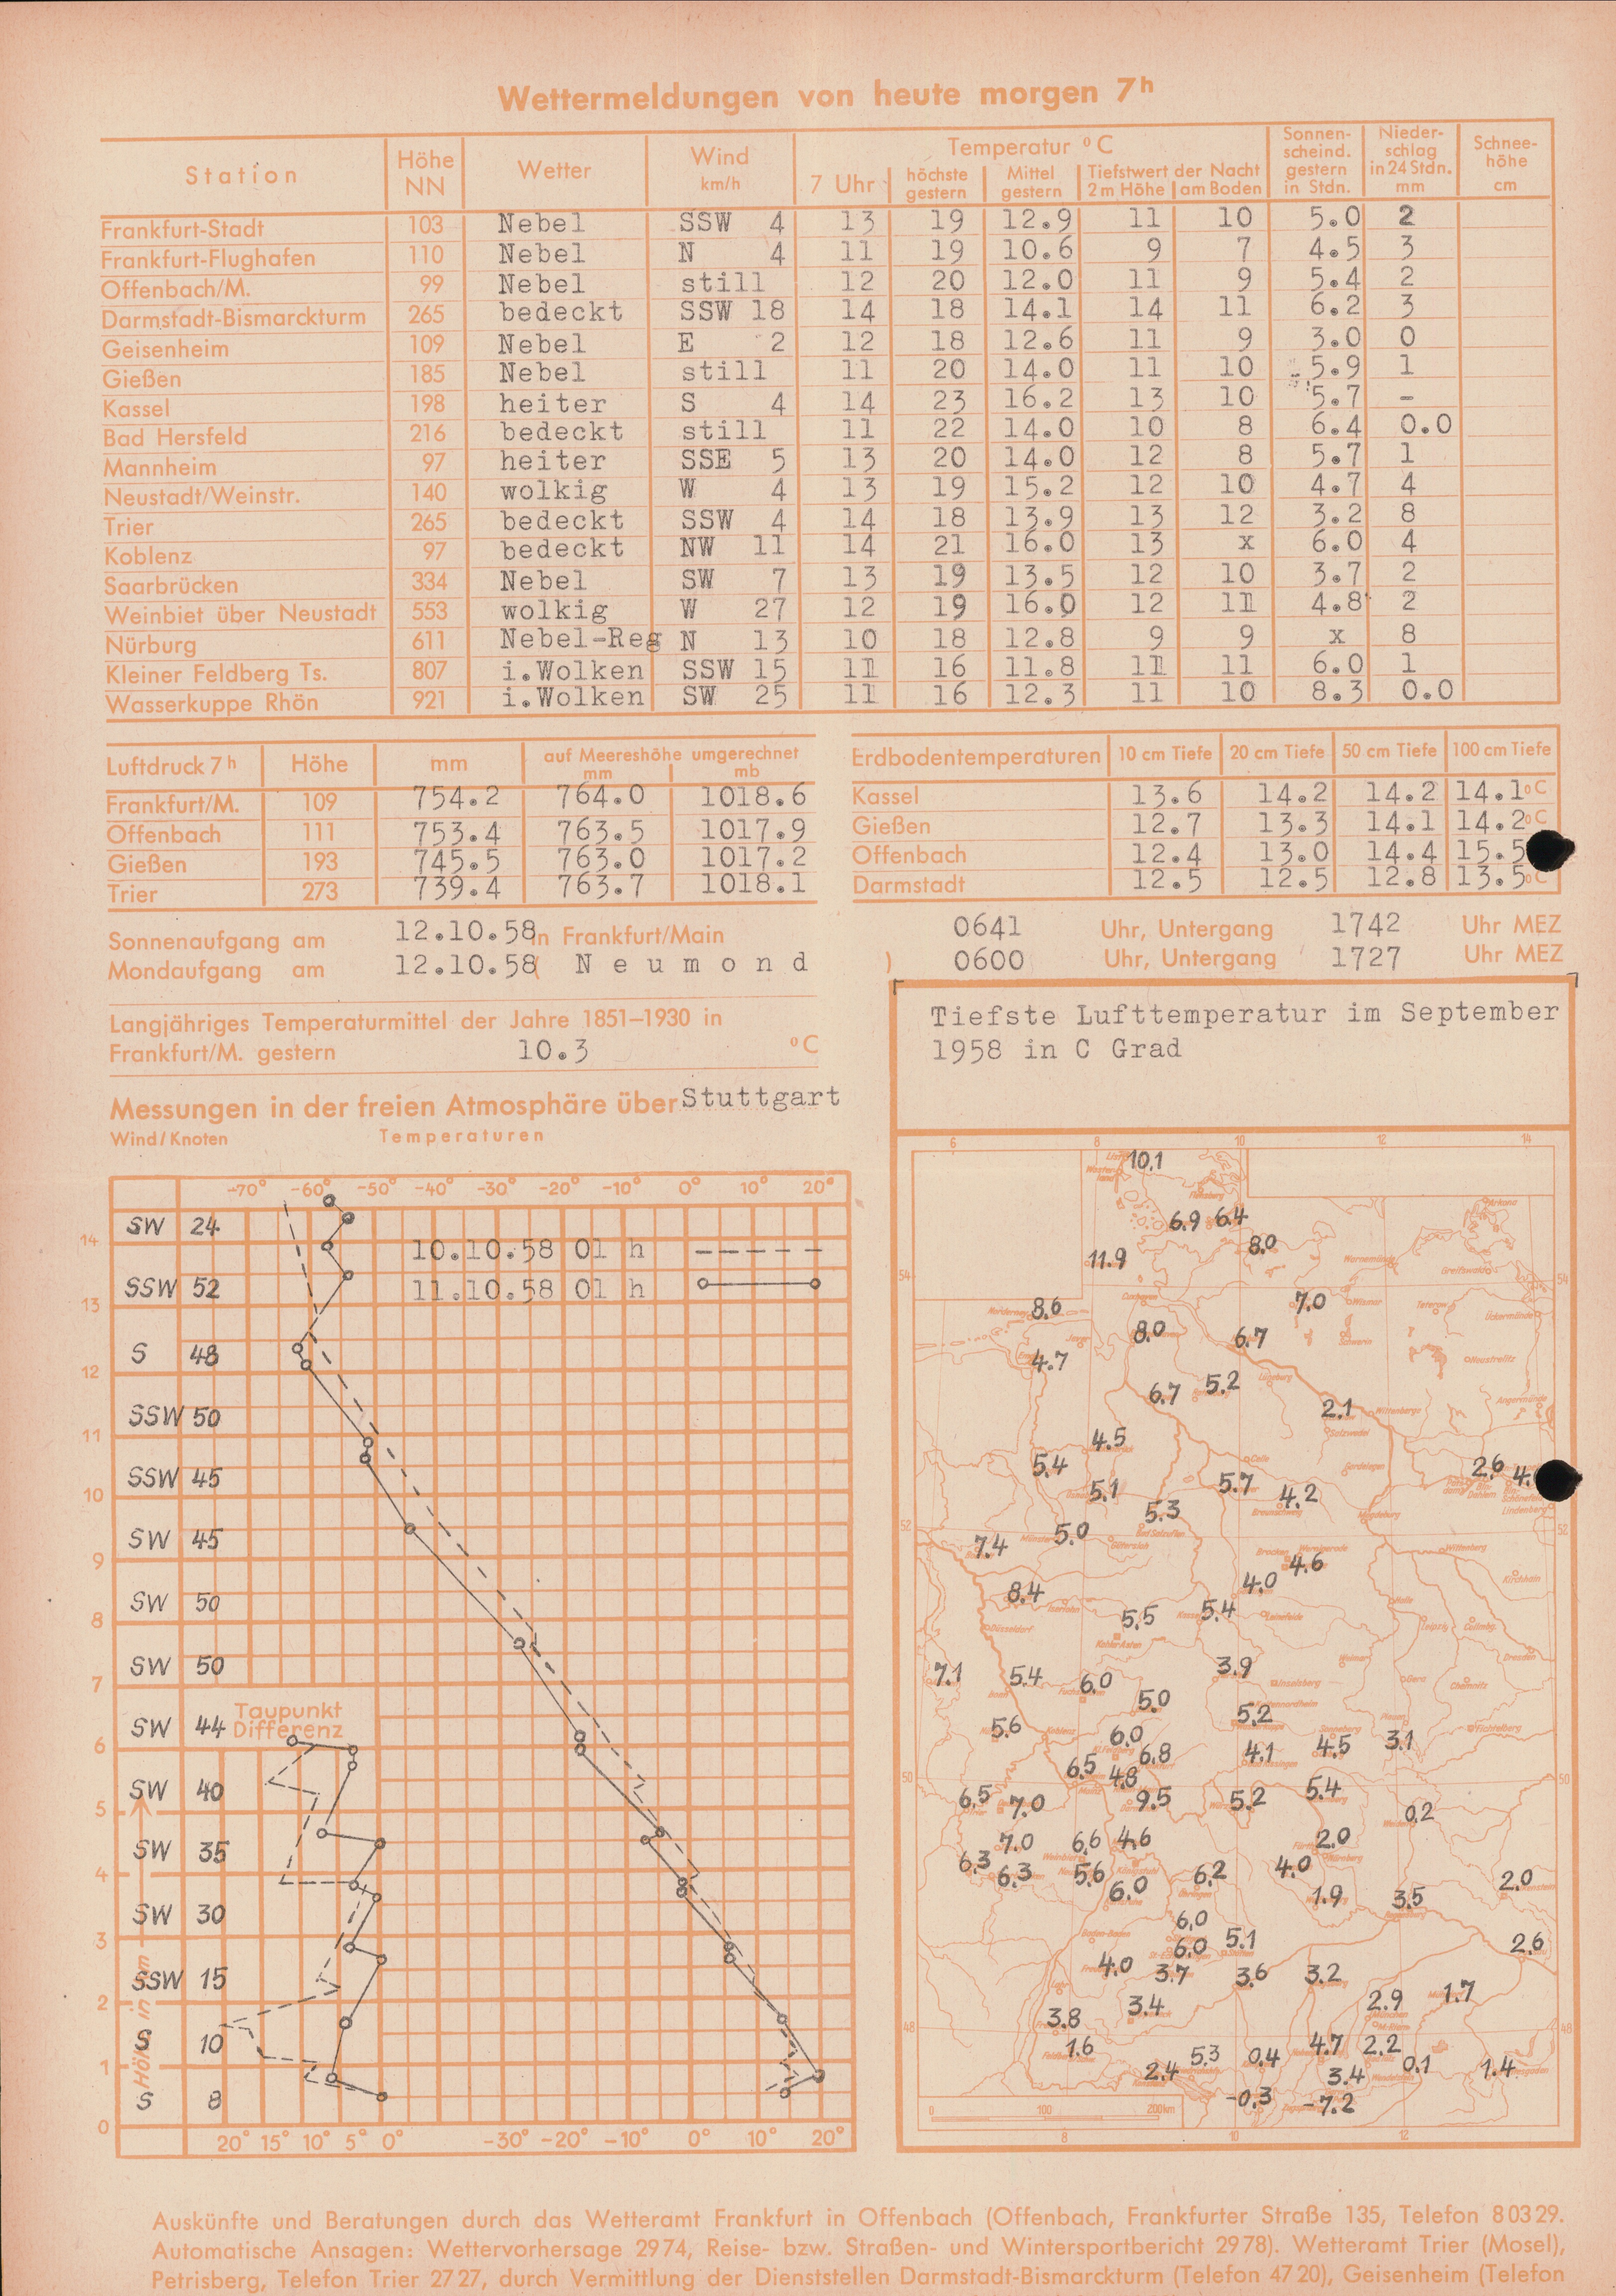 Wettermeldungen von heute morgen 7h
Station Höhe NN Wetter Wind km/h Temperatur °C Sonnenscheind. gestern in Stdn. Niederschlag in 24 Stdn. mm Schneehöhe cm
7 Uhr höchste gestern Mittel gestern Tiefstwert der Nacht 2 m Höhe am Boden
Frankfurt-Stadt 103 Nebel SSW 4 13 19 12.9 11 10 5.0 2
Frankfurt-Flughafen 110 Nebel N 4 11 19 10.6 9 7 4.5 3
Offenbach/M. 99 Nebel still 12 20 12.0 11 9 5.4 2
Darmstadt-Bismarckturm 265 bedeckt SSW 18 14 18 14.1 14 11 6.2 3
Geisenheim 109 Nebel E 2 12 18 12.6 11 9 3.0 0
Gießen 185 Nebel still 11 20 14.0 11 10 5.9 1
Kassel 198 heiter S 4 14 23 16.2 13 10 5.7 -
Bad Hersfeld 216 bedeckt still 11 22 14.0 10 8 6.4 0.0
Mannheim 97 heiter SSE 5 13 20 14.0 12 8 5.7 1
Neustadt/Weinstr. 140 wolkig W 4 13 19 15.2 12 10 4.7 4
Trier 265 bedeckt SSW 4 14 18 13.9 13 12 3.2 8
Koblenz 97 bedeckt NW 11 14 21 16.0 13 x 6.0 4
Saarbrücken 334 Nebel SW 7 13 19 13.5 12 10 3.7 2
Weinbiet über Neustadt 553 wolkig W 27 12 19 16.0 12 11 4.8 2
Nürburg 611 Nebel-Reg N 13 10 18 12.8 9 9 x 8
Kleiner Feldberg Ts. 807 i.Wolken SSW 15 11 16 11.8 11 11 6.0 1
Wasserkuppe Rhön 921 i.Wolken SW 25 11 16 12.3 11 10 8.3 0.0
Luftdruck 7h Höhe mm auf Meereshöhe umgerechnet mm mb
Frankfurt/M. 109 754.2 764.0 1018.6
Offenbach 111 753.4 763.5 1017.9
Gießen 193 745.5 763.0 1017.2
Trier 273 739.4 763.7 1018.1
Erdbodentemperaturen 10 cm Tiefe 20 cm Tiefe 50 cm Tiefe 100 cm Tiefe
Kassel 13.6 14.2 14.2 14.1 °C
Gießen 12.7 13.3 14.1 14.2 °C
Offenbach 12.4 13.0 14.4 15.5
Darmstadt 12.5 12.5 12.8 13.5 °C
Sonnenaufgang am 12.10.58 in Frankfurt/Main 0641 Uhr, Untergang 1742 Uhr MEZ
Mondaufgang am 12.10.58 ( Neumond ) 0600 Uhr, Untergang 1727 Uhr MEZ
Langjähriges Temperaturmittel der Jahre 1851–1930 in
Frankfurt/M. gestern 10.3 °C
Messungen in der freien Atmosphäre über Stuttgart
Wind/Knoten Temperaturen
-70° -60° -50° -40° -30° -20° -10° 0° 10° 20°
SW 24
14
10.10.58 01 h
SSW 52
11.10.58 01 h
13
S 48
12
SSW 50
11
SSW 45
10
SW 45
9
SW 50
8
SW 50
7
SW 44 Taupunkt Differenz
6
SW 40
5
SW 35
4
SW 30
3
SSW 15
2
S 10
1
S 8
0
Höhe in km
20° 15° 10° 5° 0° -30° -20° -10° 0° 10° 20°
Tiefste Lufttemperatur im September
1958 in C Grad
6 8 10 12 14
10.1
6.9 6.4
8.0
11.9
54 54
8.6 7.0
8.0 6.7
4.7
6.7 5.2
2.1
4.5
5.4 2.6 4.
5.1 5.7 4.2
5.3
52 52
7.4 5.0
4.6
8.4 4.0
5.5 5.4
7.1 5.4 6.0 3.9
5.0
5.6 5.2
6.0 3.1
6.8 4.1 4.5
6.5 4.8
50 50
6.5 7.0 9.5 5.2 5.4
0.2
7.0 6.6 4.6 2.0
6.3 6.3 5.6 6.2 4.0
6.0 1.9 3.5 2.0
6.0
6.0 5.1 2.6
4.0 3.7 3.6 3.2
3.4 2.9 1.7
3.8
48 48
1.6 4.7 2.2
5.3 0.4 0.1
2.4 3.4 1.4
-0.3 -7.2
0 100 200km
8 10 12
Auskünfte und Beratungen durch das Wetteramt Frankfurt in Offenbach (Offenbach, Frankfurter Straße 135, Telefon 8 03 29.
Automatische Ansagen: Wettervorhersage 29 74, Reise- bzw. Straßen- und Wintersportbericht 29 78). Wetteramt Trier (Mosel),
Petrisberg, Telefon Trier 27 27, durch Vermittlung der Dienststellen Darmstadt-Bismarckturm (Telefon 47 20), Geisenheim (Telefon